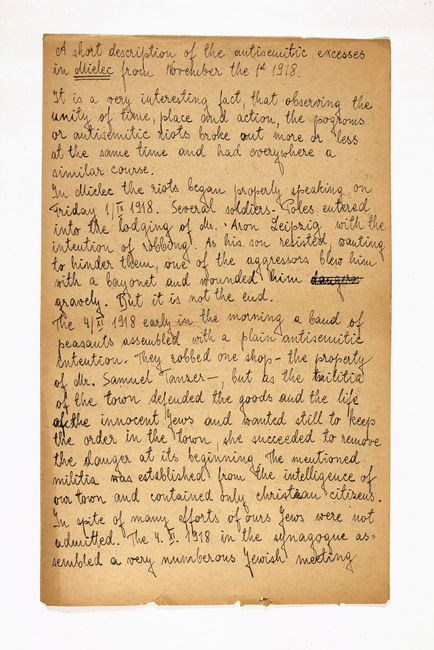 A short description of the antisemitic excesses
in Mielec from November the 1st 1918.
It is a very interesting fact, that observing the
unity of time, place and action, the pogroms
or antisemitic riots broke out more or less
at the same time and had everywhere a
similar course.
In Mielec the riots began properly speaking on
Friday 1/XI 1918. Several soldiers - Poles entered
into the lodging of Mr. Aron Leipzig with the
intention of robbing. As his son resisted, wanting
to hinder them, one of the aggressors blew him
with a bayonet and wounded him
gravely. But it is not the end.
The 4/XI 1918 early in the morning a band of
peasants assembled with a plain antisemitic
intention. They robbed one shop - the property
of Mr. Samuel Tanzer -, but as the militia
of the town defended the goods and the life
of the innocent Jews and wanted still to keep
the order in the town, she succeeded to remove
the danger at its beginning. The mentioned
militia was established from the intelligence of
our town and contained only christian citizens.
In spite of many efforts of ours Jews were not
admitted. The 4. XI. 1918 in the synagogue as-
sembled a very numberous Jewish meeting